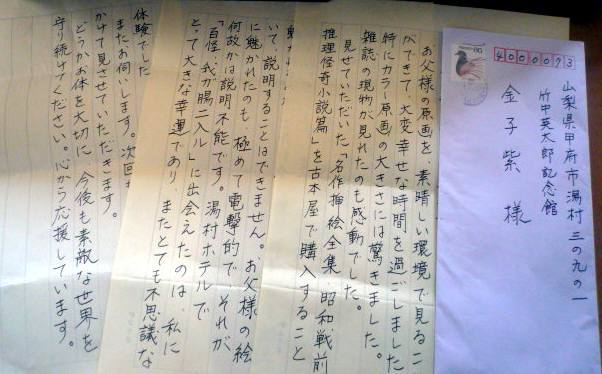 4000073
山梨県甲府市湯村三の九の一
竹中英太郎記念館
金子紫様
お父様の原画を、素晴しい環境で見るこ
とができて、大変幸せな時間を過ごしました
特にカラー原画の大きさには驚きました。
雑誌の現物が見れたのも感動でした。
見せていただいた「名作挿絵全集・昭和戦前
推理怪奇小説篇」を古本屋で購入すること
いて、説明することはできません。お父様の絵
に魅かれたのも、極めて電撃的で、それが
何故かは説明不能です。湯村ホテルで
「百怪、我ガ腸ニ入ル」に出会えたのは、私に
とって大きな幸運であり、またとても不思議な
体験でした
またお伺いします。次回も
かけて見させていただきます。
どうかお体を大切に、今後も素敵な世界を
守り続けてください。心から応援しています。